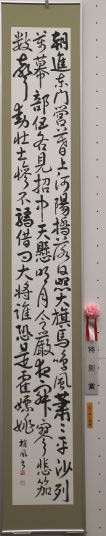 朝進東门營暮上河陽橋落日照大旗馬鳴風蕭〻平沙列
萬幕部伍各見招中天懸明月令嚴夜寂寥悲笳
數聲動壮士惨不驕借问大将誰恐是霍嫖姚
特別賞